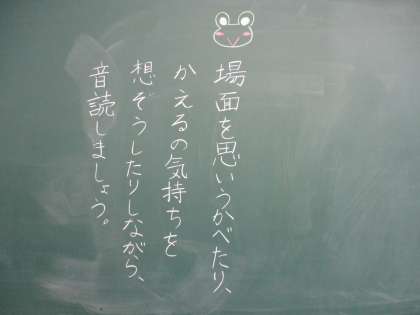 場面を思いうかべたり、
かえるの気持ちを
想ぞうしたりしながら、
音読しましょう。